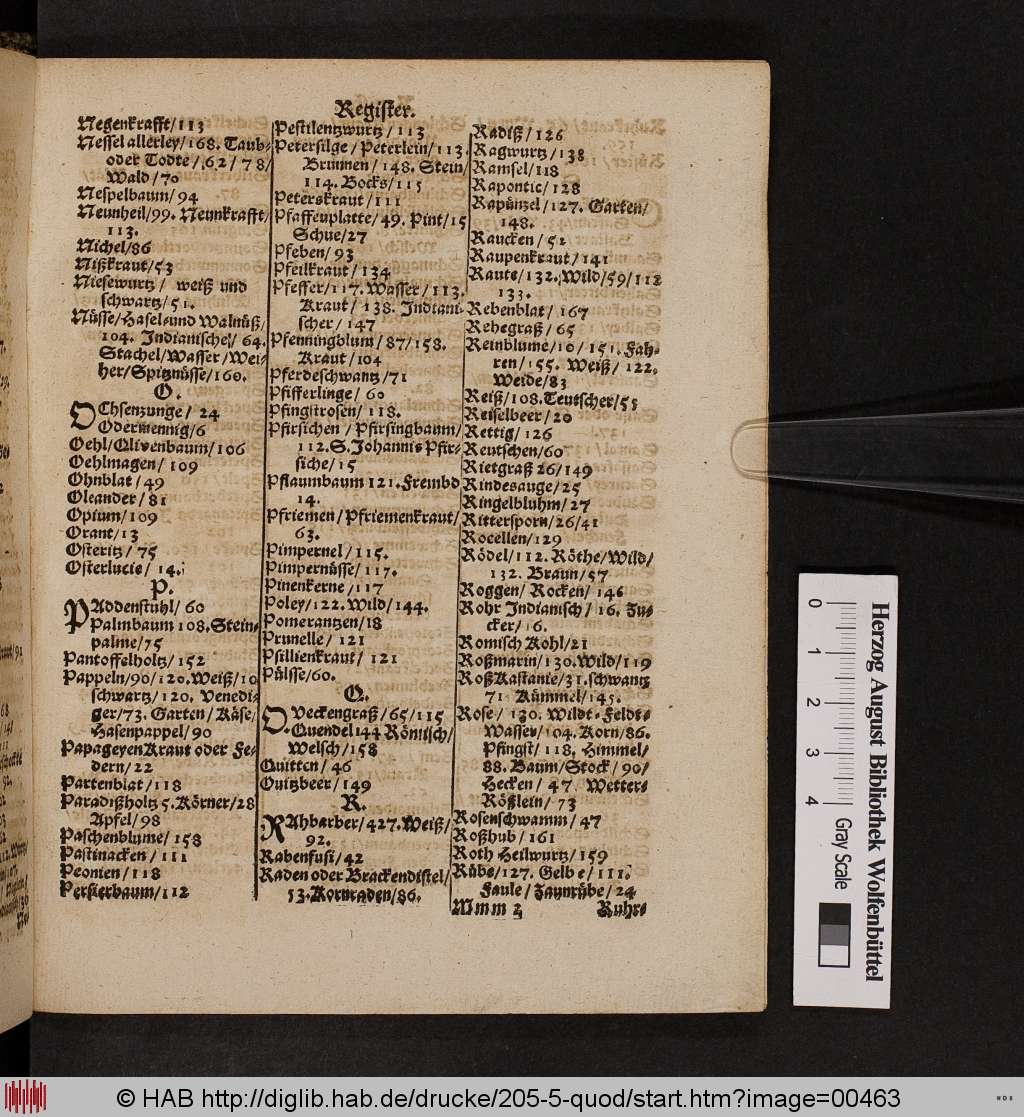 Register.
Negenkrafft/113
Nessel allerley/168. Taub-
oder Todte/62/78/
Wald/70
Nespelbaum/94
Neunheil/99. Neunkrafft/
113.
Nichel/86
Nißkraut/53
Niesewurtz/ weiß und
schwartz/51.
Nüsse/Hasel-und Walnüß/
104. Indianische/64.
Stachel/Wasser/Wei-
her/Spitznüsse/160.
O.
OChsenzunge/ 24
Odermennig/6
Oehl/Olivenbaum/106
Oehlmagen/109
Ohnblat/49
Oleander/81
Opium/109
Orant/13
Osteritz/75
Osterlucie/14.
P.
PAddenstuhl/60
Palmbaum 108. Stein-
palme/75
Pantoffelholtz/152
Pappeln/90/120. Weiß/10
schwartz/120. Venedi-
ger/73. Garten/Käse/
Hasenpappel/90
PapageyenKraut oder Fe-
dern/22
Partenblat/118
Paradißholtz 5. Körner/28
Apfel/98
Paschenblume/158
Pastinacken/111
Peonien/118
Persierbaum/112
Pestilentzwurtz/113
Petersilge/Peterlein/113.
Brunnen/148. Stein/
114. Bocks/115
Peterskraut/111
Pfaffenplatte/49. Pint/15
Schue/27
Pfeben/93
Pfeilkraut/134
Pfeffer/117. Wasser/113.
Kraut/138. Indiani-
scher/147
Pfenningblum/87/158.
Kraut/104
Pferdeschwantz/71
Pfifferlinge/60
Pfingstrosen/118.
Pfirsichen/Pfirsingbaum/
112. S. Johannis Pfir-
siche/15
Pflaumbaum 121. Frembd
14.
Pfriemen/Pfriemenkraut/
63.
Pimpernel/115.
Pimpernüsse/117.
Pinenkerne/117
Poley/122. Wild/144.
Pomerantzen/18
Prunelle/121
Psillienkraut/121
Pülsse/60.
Q.
QVeckengraß/65/115
Quendel 144 Römisch/
Welsch/158
Quitten/46
Quitzbeer/149
R.
RAhbarber/427. Weiß/
92.
Rabenfusi/42
Raden oder Brackendistel/
53. Kornraden/86.
Radiß/126
Ragwurtz/138
Ramsel/118
Rapontic/128
Rapüntzel/127. Garten/
148.
Raucken/51
Raupenkraut/141
Raute/132. Wild/59/112
133.
Rebenblat/167
Rehegraß/65
Reinblume/10/151. Fah-
ren/155. Weiß/122.
Weide/83
Reiß/108. Teutscher/55
Reiselbeer/20
Rettig/126
Reutschen/60
Rietgraß 26/149
Rindesauge/25
Ringelbluhm/27
Rittersporn/26/41
Rocellen/129
Rödel/112. Röthe/Wild/
132. Braun/57
Roggen/Rocken/146
Rohr Indianisch/16. Zu-
cker/16.
Romisch Kohl/21
Roßmarin/130. Wild/119
RoßKastanie/31. schwantz
71. Kümmel/145.
Rose/130. Wildt-Feldt-
Wasser/104. Korn/86.
Pfingst/118. Himmel/
88. Baum/Stock/90/
Hecken/47. Wetter-
Rößlein/73
Rosenschwamm/47
Roßhub/161
Roth Heilwurtz/159
Rübe/127. Gelbe/111.
Faule/Zaunrübe/24
Mmm 2 Ruhr-
Herzog August Bibliothek Wolfenbüttel
0 1 2 3 4 Gray Scale
© HAB http://diglib.hab.de/drucke/205-5-quod/start.htm?image=00463